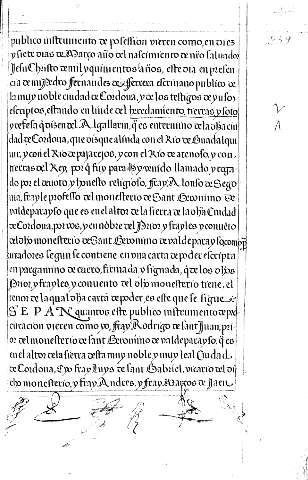 publico instrumento de possession vieren como, en dies
y siete dias de Março año del nascimiento de nrõ saluador
Jesu Christo de mil y quinientos años, este dia en presen
cia de mi Pedro Fernandes de Herrera escriuano publico de
la muy noble ciudad de Cordoua, y de los testigos de yuso
escriptos, estando en linde del heredamiento, tierras y soto
y refesa q̃ disen del Algallarin, q̃ es en termino de la dha ciu
dad de Cordoua, que dis que alinda con el Rio de Guadalqui
uir, y con el Rio de pajarejos, y con el Rio de arenoso, y con
tierras del Rey, por q̃ fuy para lo yuso llamado, y roga
do por el deuoto, y honesto religioso, fray Alonso de Sego
uia, frayle professo del monesterio de Sant Geronimo de
valdeparayso que es en el alto de la sierra de la dha Ciudad
de Cordoua, por vos, y en nombre del Prior y frayles y conuẽto
del dho monesterio de Sant Geronimo de valdeparayso, como
curadores segun se contiene en vna carta de poder escripta
en pargamino de cuero, firmada y signada, q̃ de los dhos
Prior, y frayles, y conuento del dho monesterio tiene, el
tenor de la qual dha carta de poder, es este que se sigue
SEPAN quantos este publico instrumento de pro
curacion vieren como yo, Fray Rodrigo de sant Juan, pri
or del monesterio de sant Geronimo de valdeparayso, q̃ es
en el alto de la sierra desta muy noble y muy leal Ciudad
de Cordoua, E yo Fray Luys de sant Gabriel, vicario del di
cho monesterio, y fray Andres, y Fray Marcos de Jaen